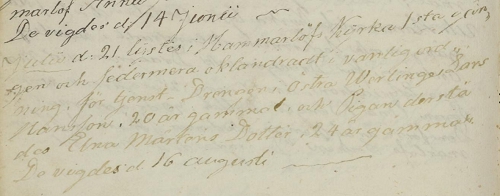 De vigdes d 14 Junii
Julii d. 21 lystes i Hammarlöfs Kyrka 1sta gån,
gen och sedermera oklandradt i vanlig ord
ning, för tjenst Drängen i Östra Werlinge Lars
Hansson, 20 år gammal, och Pigan derstä
des Elna Mårtens Dotter 24 år gammal
De vigdes d 16 augusti